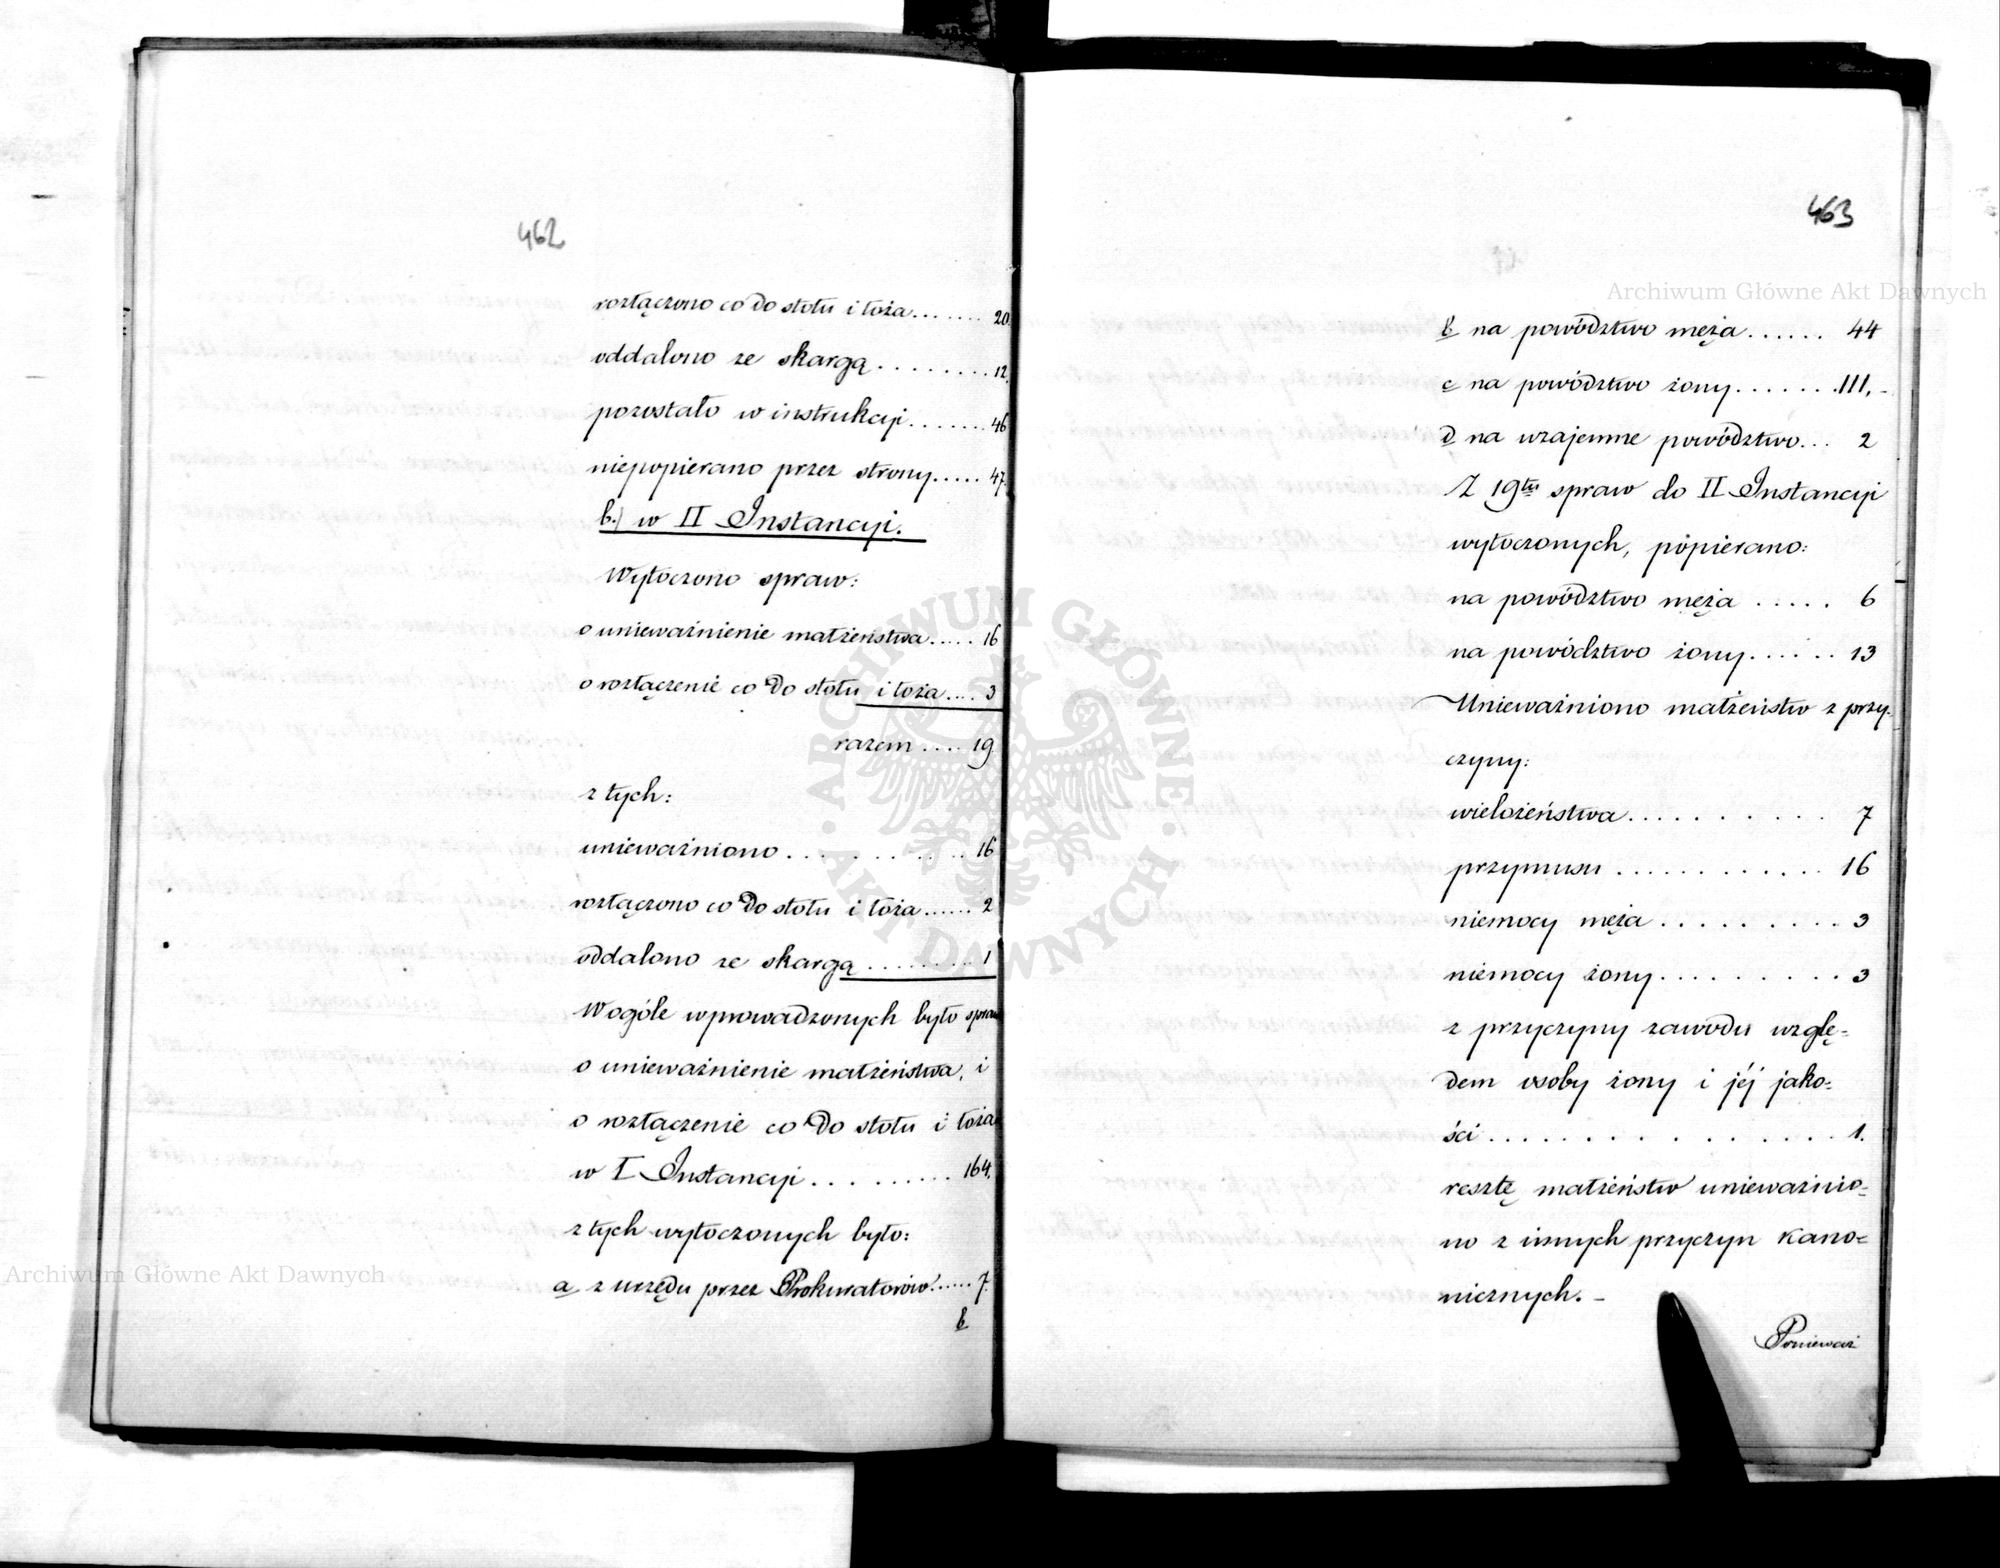 462
rozłączono co do stołu i łoża....... 20.
oddalono ze skargą......... 12.
pozostało w instrukcji....... 46
niepopierano przez strony..... 47.
b.) w II Instancyi.
Wytoczono spraw:
o unieważnienie małżeństwa..... 16
o rozłączenie co do stołu i łoża.... 3
razem.... 19
z tych:
unieważniono........... 16
rozłączono co do stołu i łoża...... 2
oddalono ze skargą......... 1
Wogóle wprowadzonych było spraw
o unieważnienie małżeństwa, i
o rozłączenie co do stołu i łoża
w I Instancyi......... 164.
z tych wytoczonych było:
a z urzędu przez Prokuratorów..... 7.
b
463
b na powództwo męża...... 44
c na powództwo żony....... 111.-
d na wzajemne powództwo... 2
Z 19tu spraw do II Instancyi
wytoczonych, popierano:
na powództwo męża..... 6
na powództwo żony...... 13
Unieważniono małżeństw z przy-
czyny:
wielożeństwa.......... 7
przymusu............ 16
niemocy męża......... 3
niemocy żony......... 3
z przyczyny zawodu wzglę=
dem osoby żony i jéj jako=
ści............... 1.
resztę małżeństw unieważnio=
no z innych przyczyn kano=
nicznych.-
Ponieważ
Archiwum Główne Akt Dawnych
Archiwum Główne Akt Dawnych
ARCHIWUM GŁÓWNE · AKT DAWNYCH ·